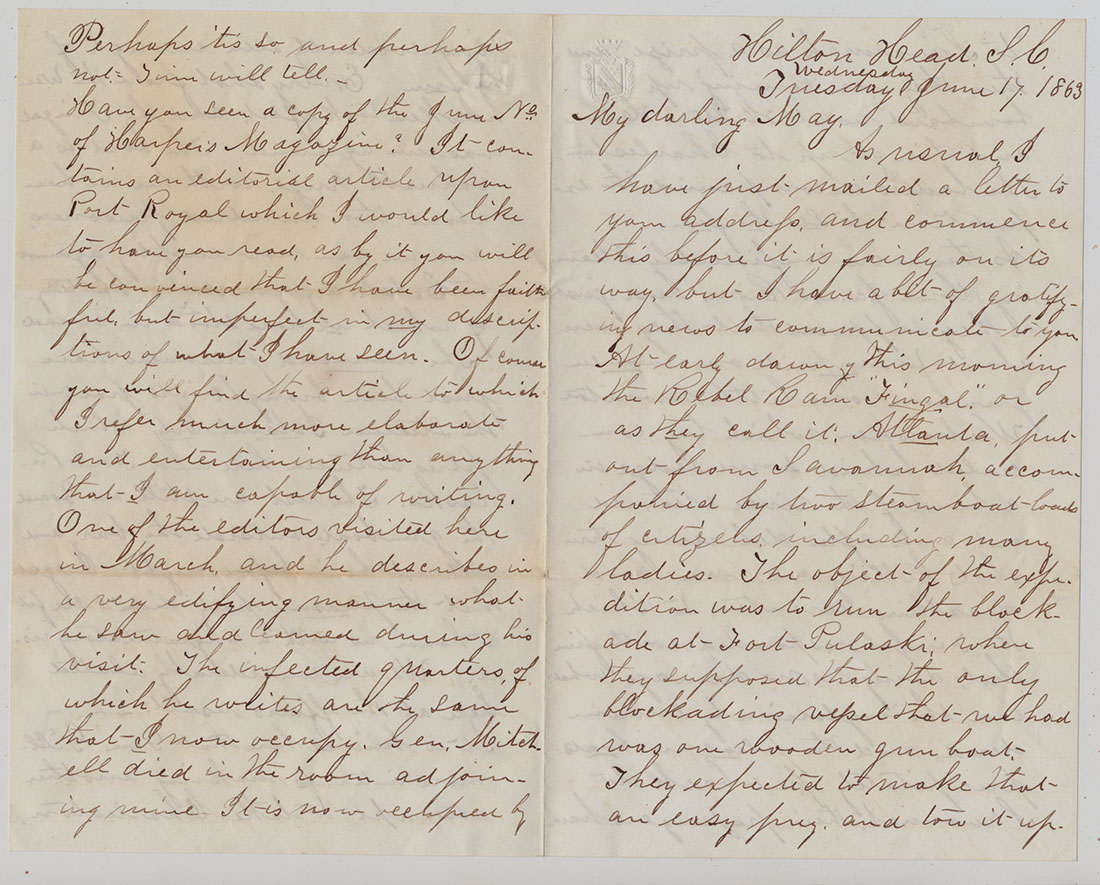 Hilton Head, S.C.
Wednesday
Tuesday June 17. 1863
My darling May,
As usual, I
have just mailed a letter to
your address, and commence
this before it is fairly on its
way, but I have a bit of gratify-
ing news to communicate to you
At early dawn of this morning
the Rebel Ram "Fingal," or
as they call it, Atlanta, put
out from Savannah, accom-
panied by two steamboat loads
of citizens, including many
ladies. The object of the expe-
dition was to run the block-
ade at Fort Pulaski, where
they supposed that the only
blockading vessel that we had
was one wooden gun boat.
They expected to make that
an easy prey, and tow it up
Perhaps 'tis so and perhaps
not. Time will tell.
Have you seen a copy of the June No.
of Harper's Magazine? It con-
tains an editorial article upon
Port Royal which I would like
to have you read, as by it you will
be convinced that I have been faith
ful, but imperfect in my descrip-
tions of what I have seen. Of course
you will find the article to which
I refer much more elaborate
and entertaining than anything
that I am capable of writing.
One of the editors visited here
in March, and he describes in
a very edifying manner what
he saw and learned during his
visit. The infected quarters, of
which he writes are the same
that I now occupy. Gen. Mitch-
ell died in the room adjoin-
ing mine. It is now occupied by